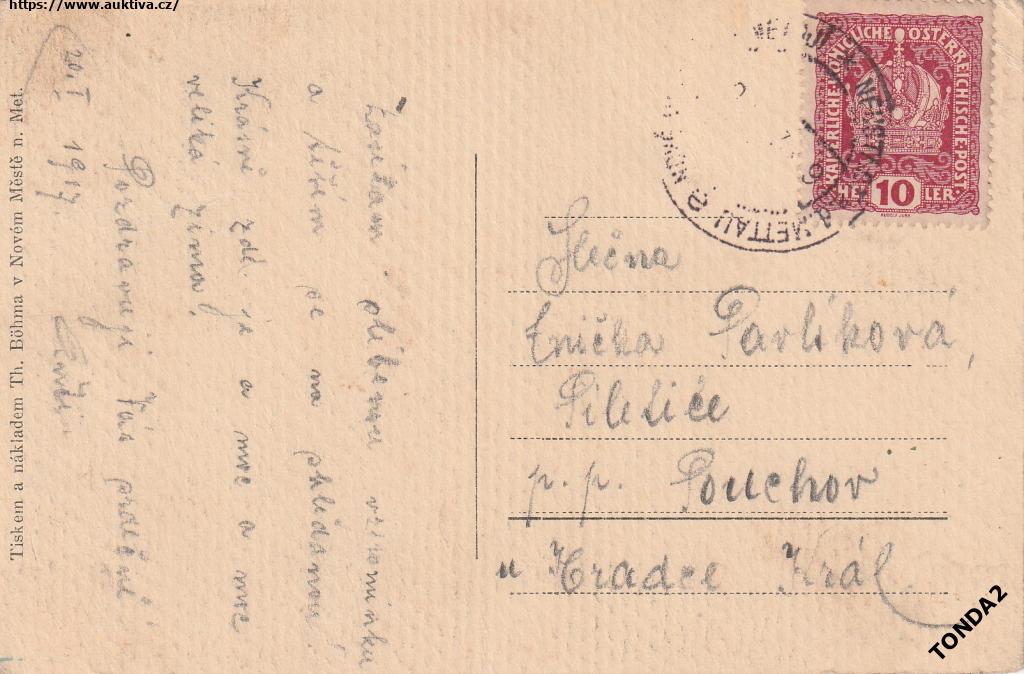 https://www.auktiva.cz/
Tiskem a nákladem Th. Böhma v Novém Městě n. Met.
Zasílám slíbenou vzpomínku
a těším se na shledanou.
Krásně zde je a moc a moc
veliká zima!
Pozdravuji Vás srdečně
20.I 1917.
KAISERLICHE KÖNIGLICHE ÖSTERREICHISCHE POST
HELLER
10
NEUSTADT a.d. METTAU
Slečna
Enička Pavlíková,
Piletice
p. p. Pouchov
u Hradce Král.
TONDA2